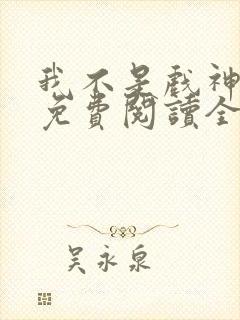 我不是戲神
免費閱讀全
吳永泉